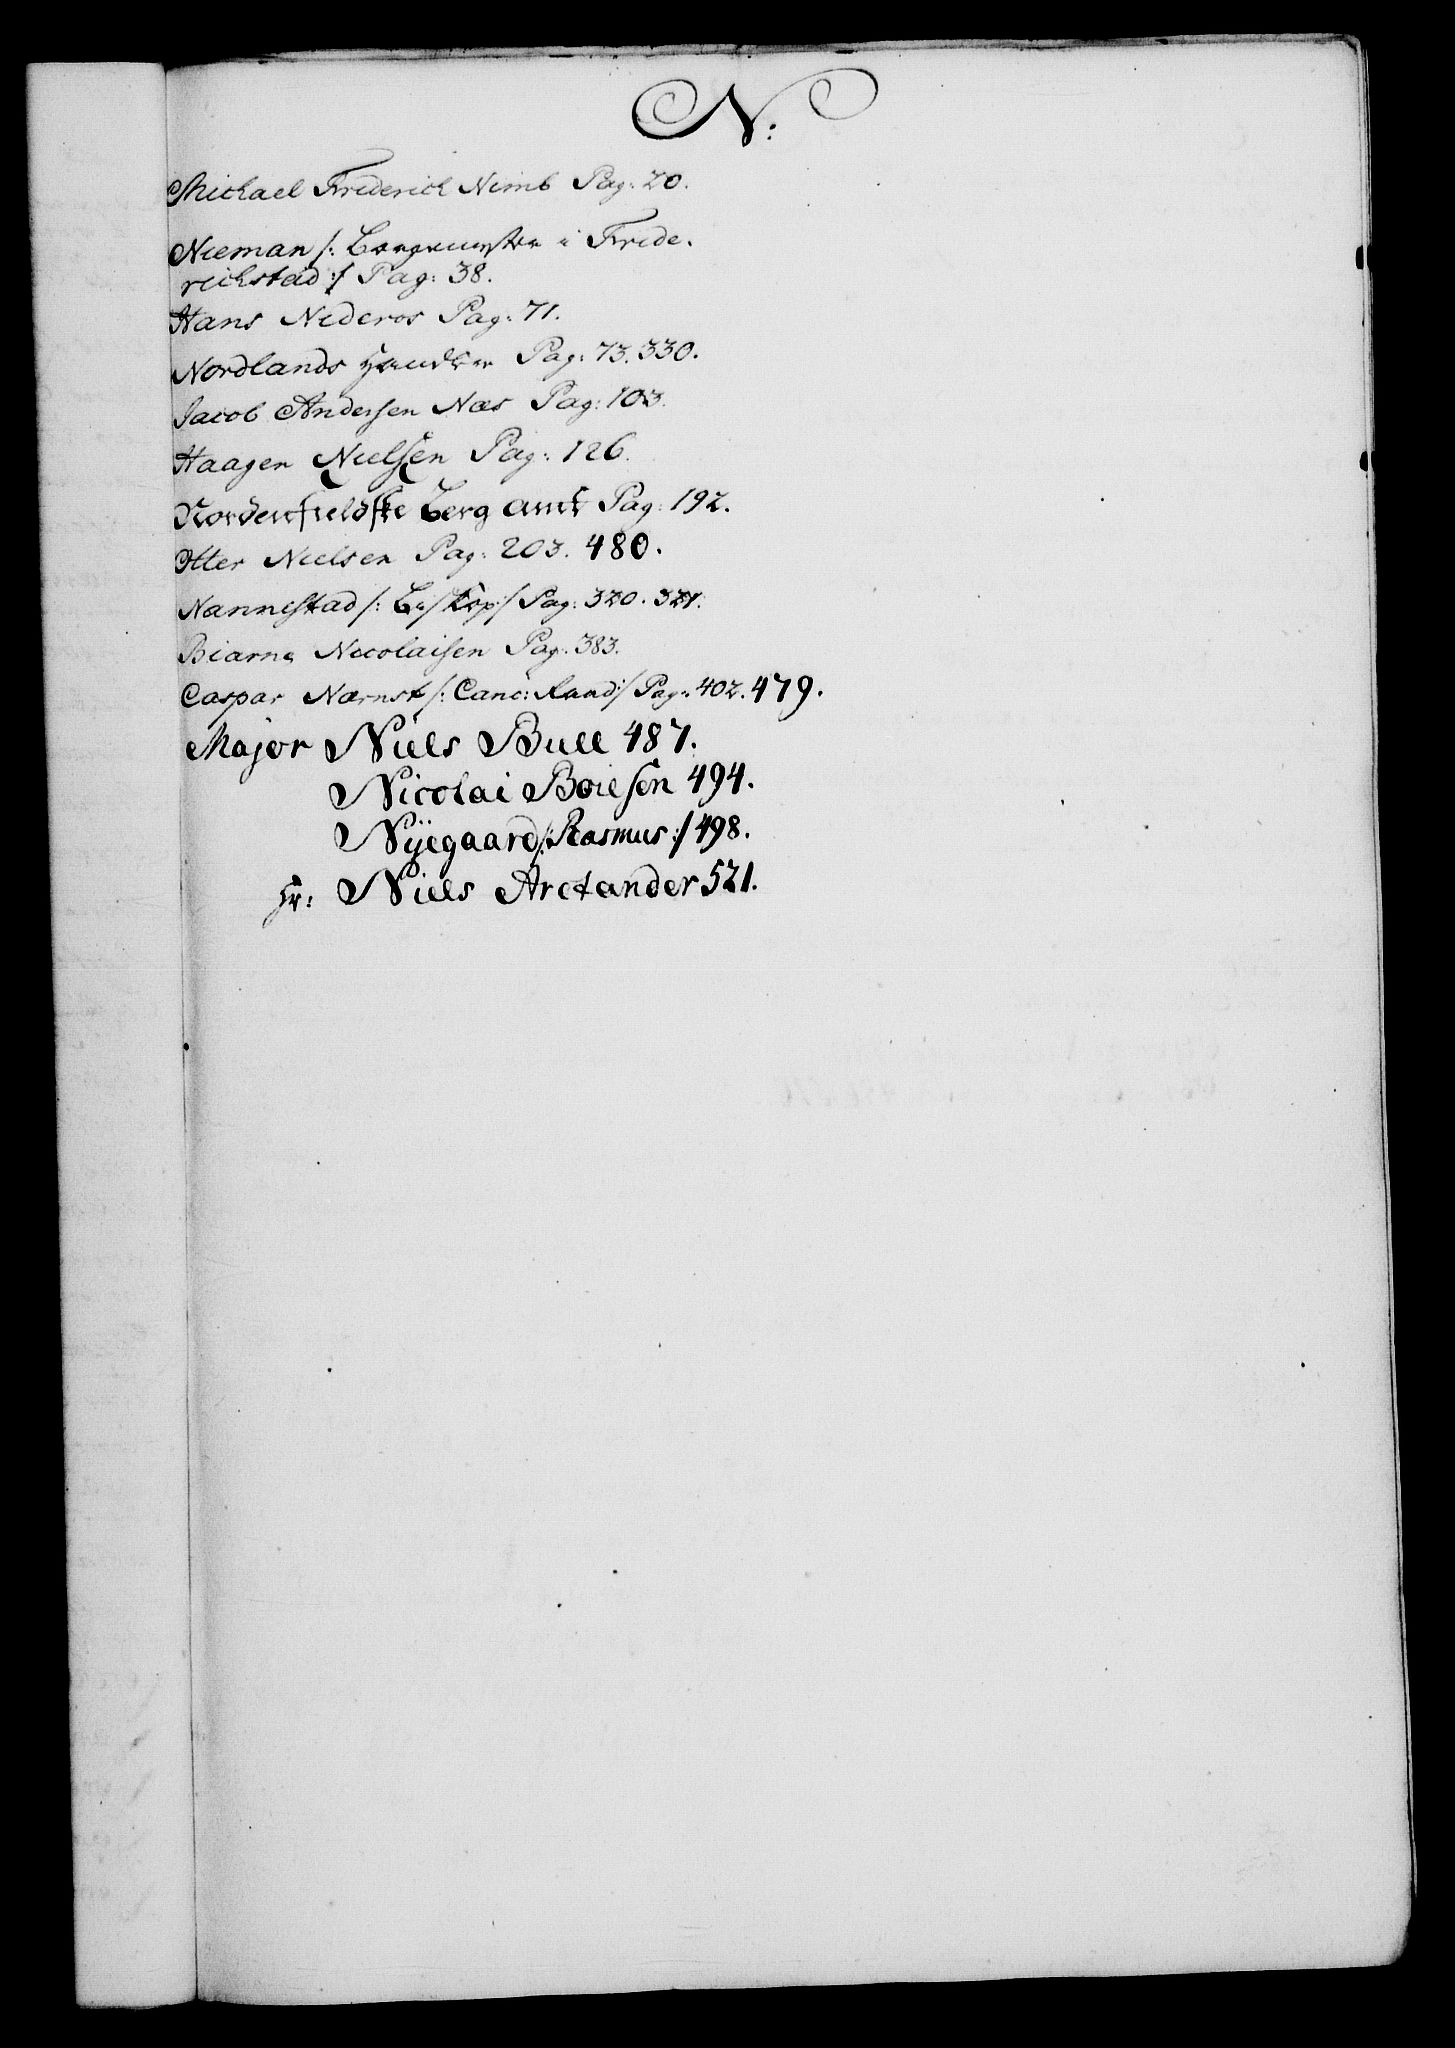 N:
Michael Friderich Nimb Pag: 20.
Nieman /: Borgemester i Fride-
richstad :/ Pag: 38.
Hans Nideros Pag: 71.
Nordlands Handler Pag: 73. 330.
Jacob Andersen Næs Pag: 103.
Haagen Nielsen Pag: 126.
Nordenfieldske Berg amt Pag: 192.
Iller Nielsen Pag: 203. 480.
Nannestad /: Biskop :/ Pag: 320. 321.
Biarne Nicolaisen Pag: 383.
Caspar Nærnst /: Canc: Raad :/ Pag: 402. 479.
Major Niels Bull 487.
Nicolai Boiesen 494.
Nÿegaard /: Rasmus :/ 498.
Hr: Niels Arctander 521.